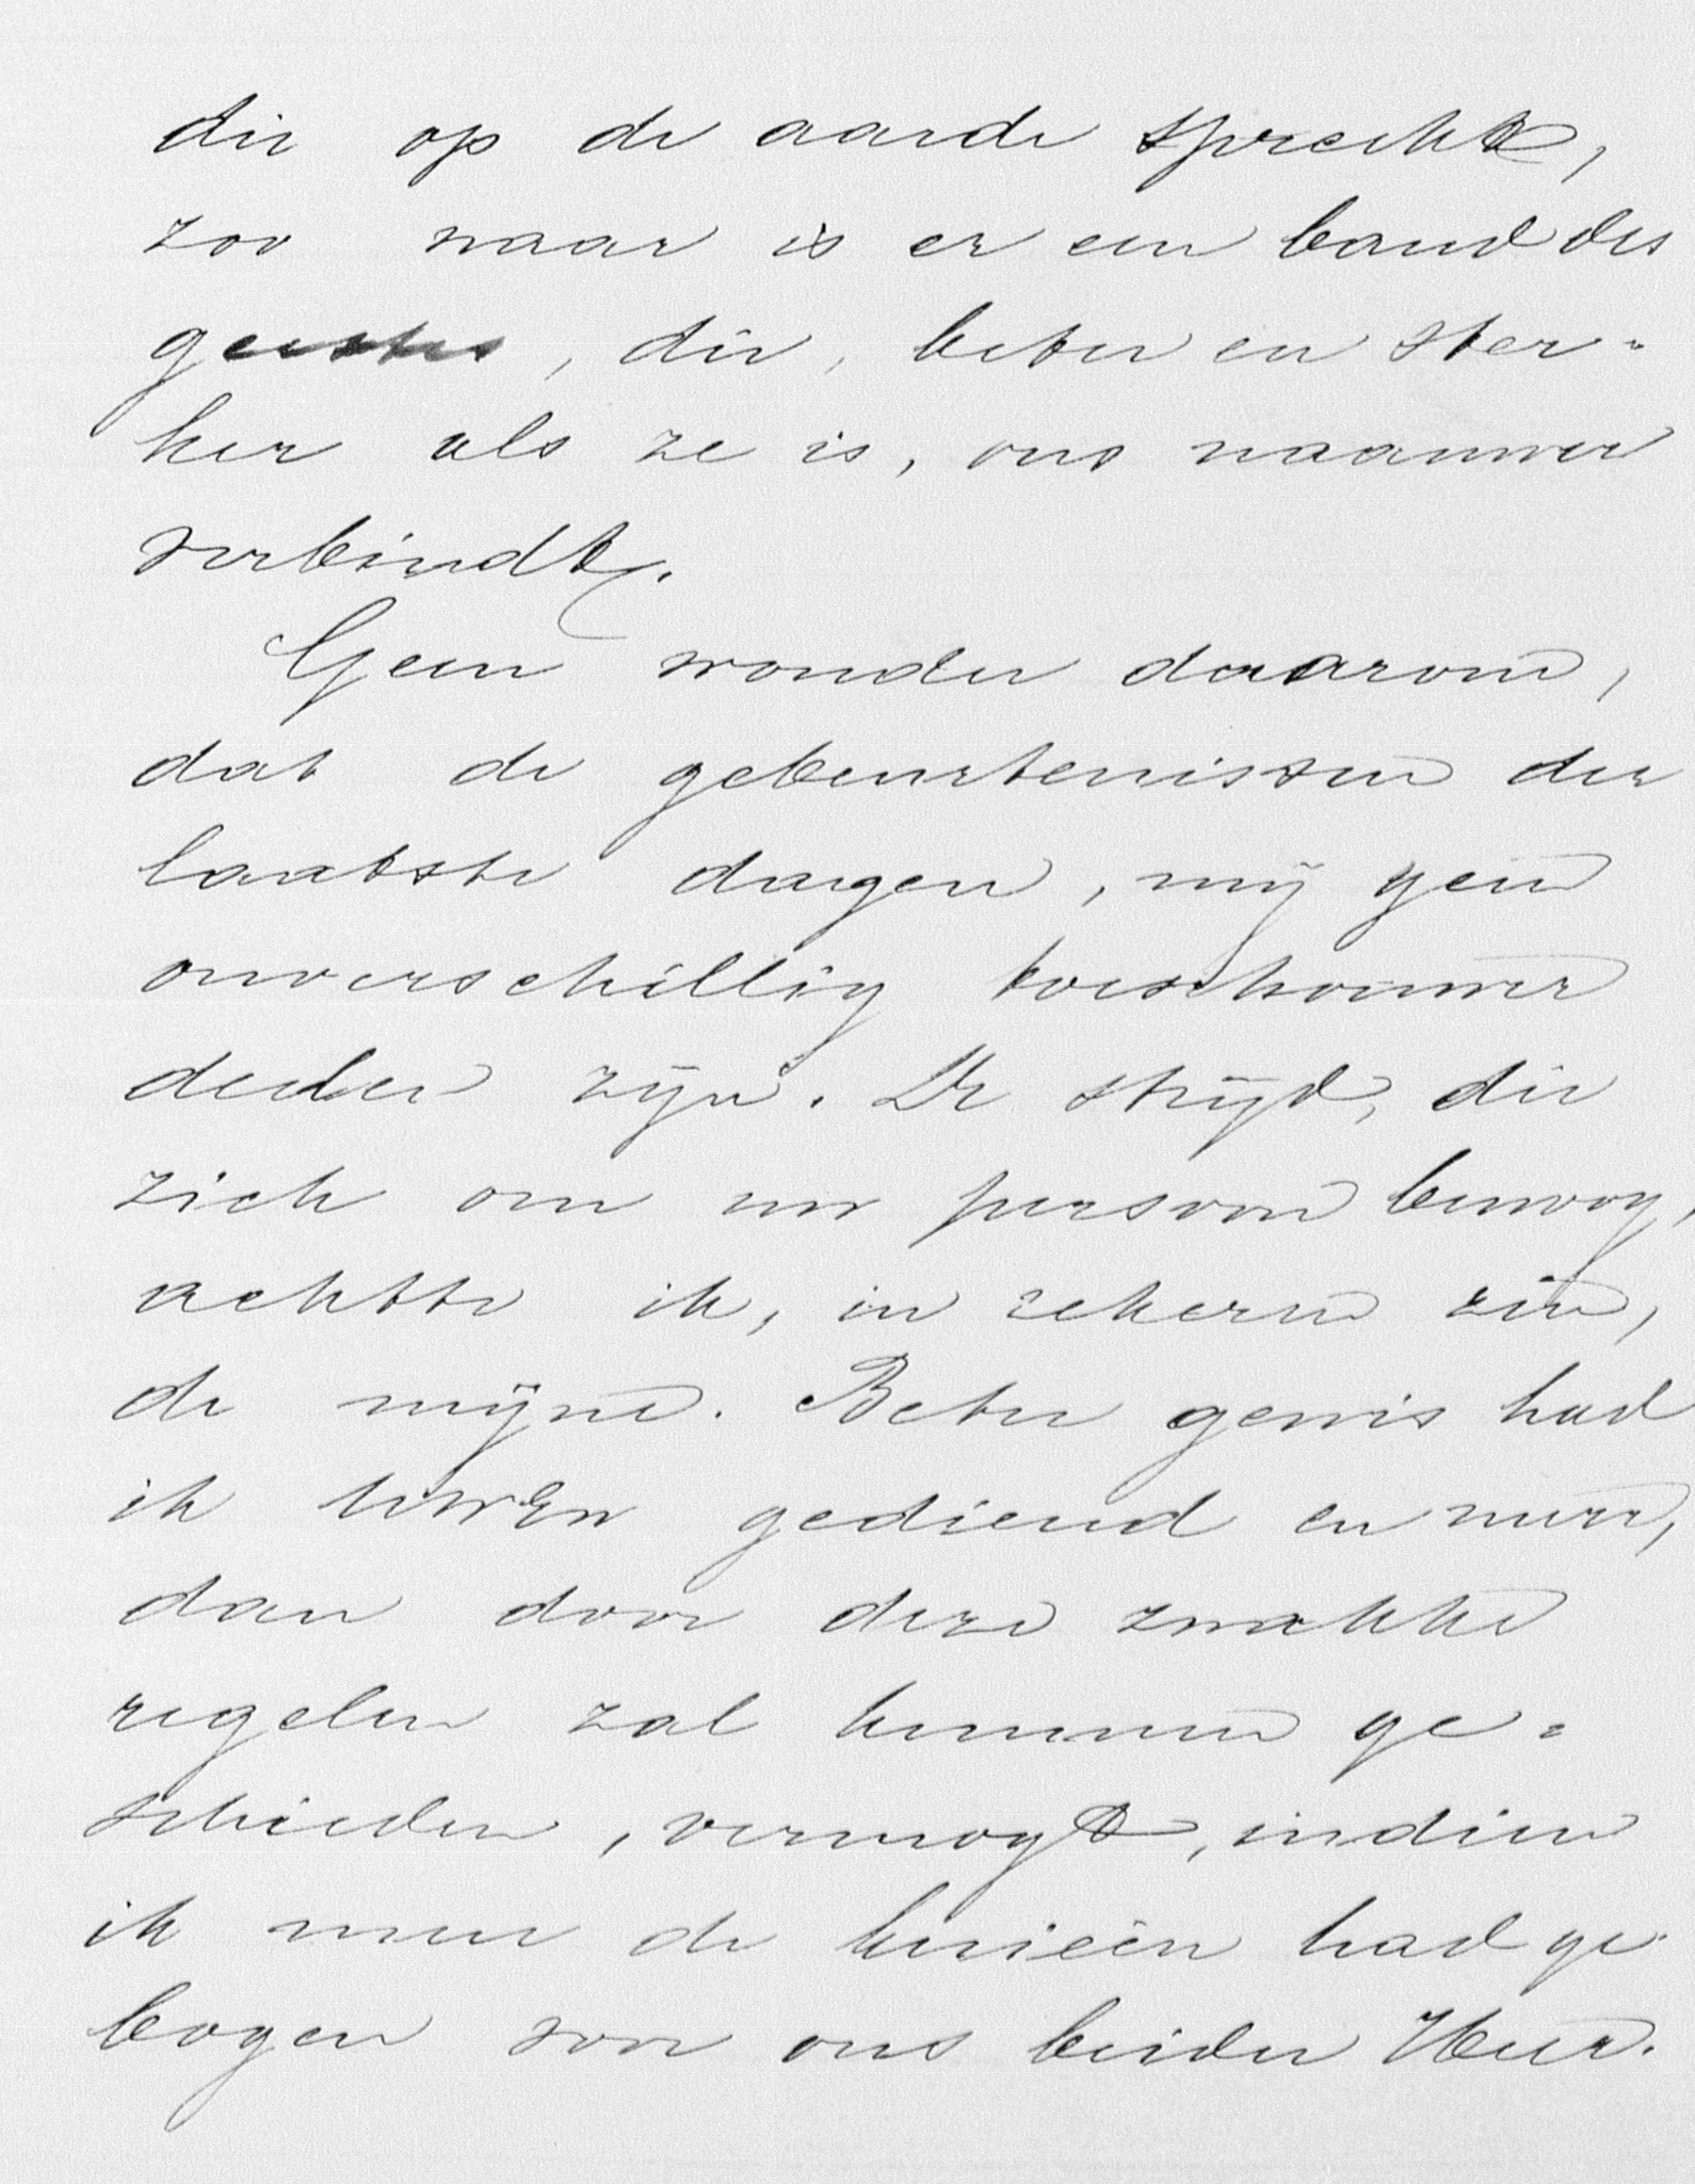 die op de aarde spreekt,
zoo waar is er een band des
geestes, die, beter en ster-
ker als ze is, ons naauwer
verbindt.
Geen wonder daarom,
dat de gebeurtenissen der
laatste dagen, mij geen
onverschillig toeschouwer
deden zijn. De strijd, die
zich om uw persoon bewoog,
achtte ik, in zekeren zin,
de mijne. Beter gewis had
ik UwEw gediend en meer,
dan door deze zwakke
regelen zal kunnen ge-
schieden, vermogt, indien
ik meer de knieën had ge-
bogen voor ons beider Heer.